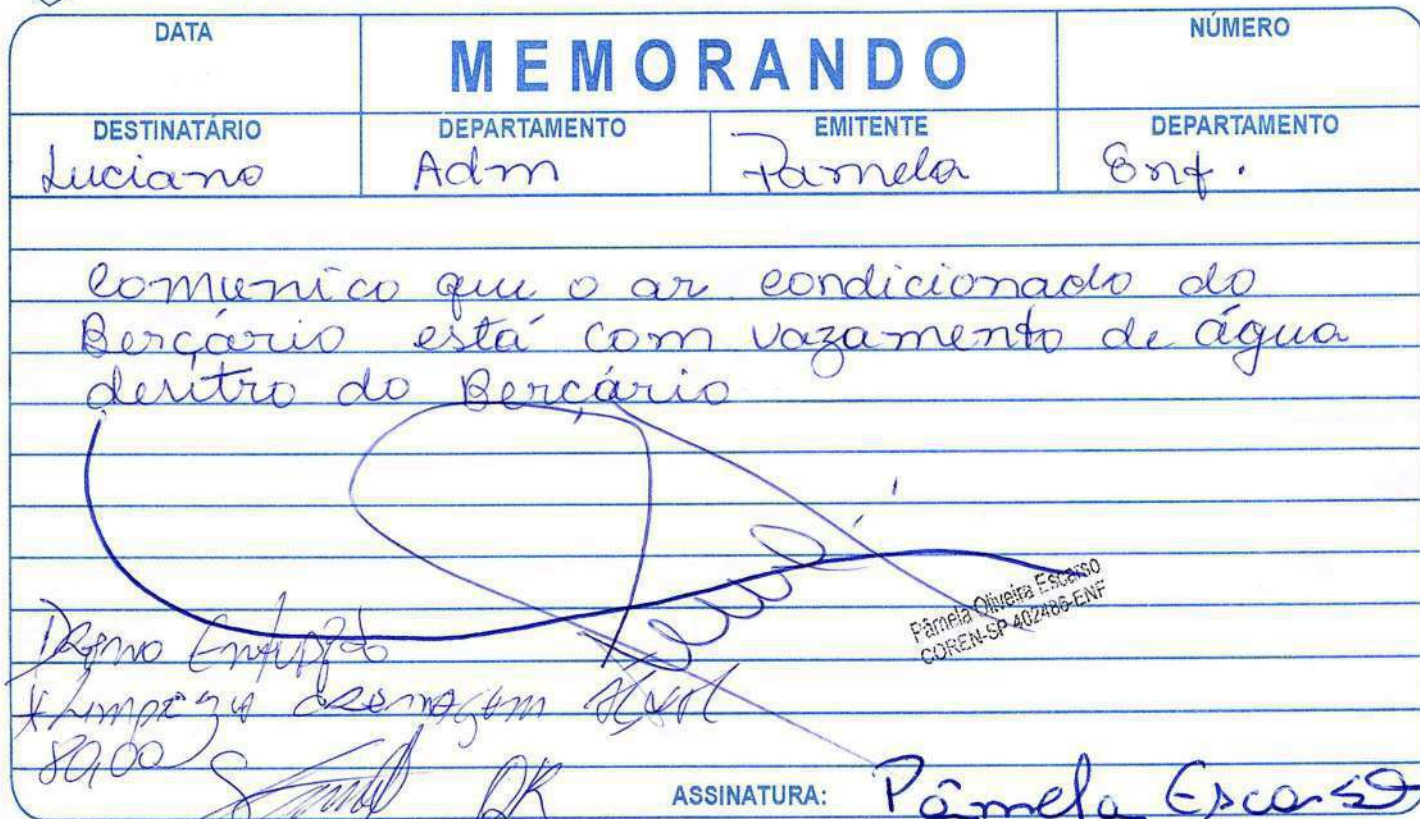 DATA
MEMORANDO
NÚMERO
DESTINATÁRIO DEPARTAMENTO EMITENTE DEPARTAMENTO
Luciano Adm Pamela Enf.
Comunico que o ar condicionado do
Berçário está com vazamento de água
dentro do Berçário
Pâmela Oliveira Escarso
COREN-SP 402486-ENF
Dreno Entupido
Limpeza drenagem
80,00 OK
ASSINATURA: Pâmela Escarso